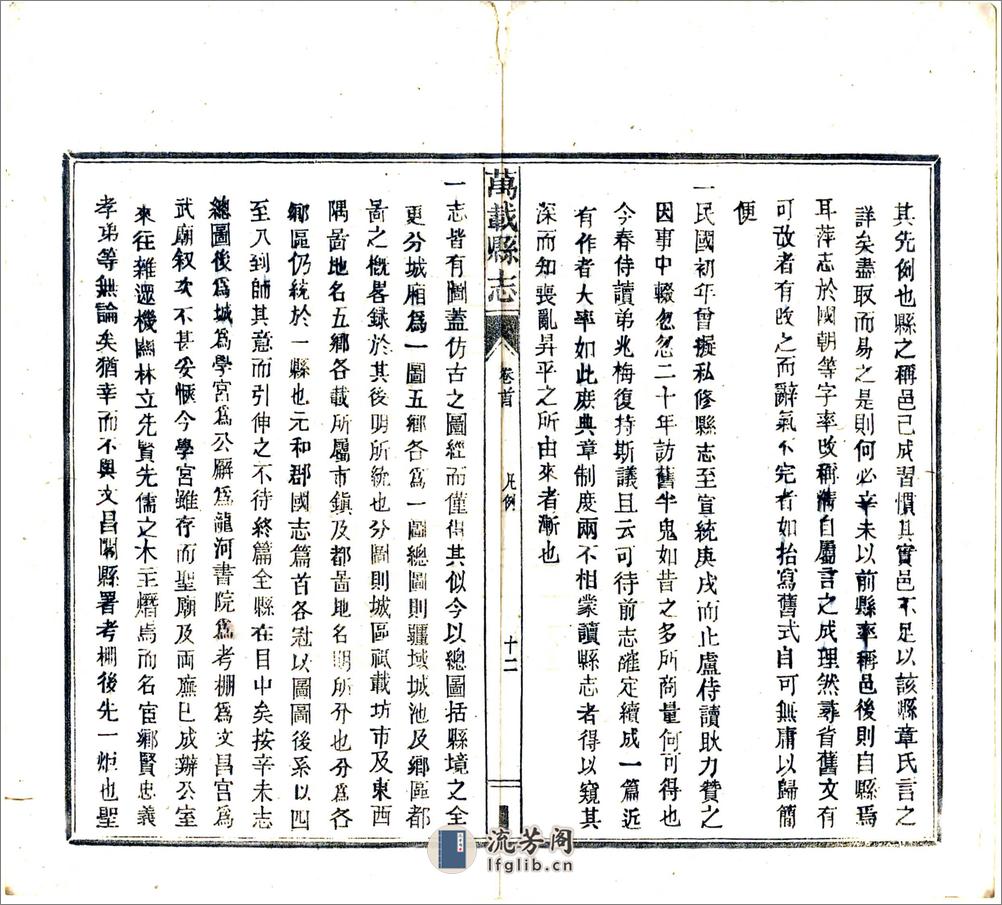 其先例也縣之稱邑已成習慣其實邑不足以該縣章氏言之
詳矣盡取而易之是則何必辛未以前縣率稱邑後則自縣焉
耳萍志於國朝等字率改稱清自屬言之成理然尋省舊文有
可改者有改之而辭氣不完者如抬寫舊式自可無庸以歸簡
便
一民國初年曾擬私修縣志至宣統庚戌而止盧侍讀耿力贊之
因事中輟忽忽二十年訪舊半鬼如昔之多所商量何可得也
今春侍讀弟兆梅復持斯議且云可待前志確定續成一篇近
有作者大率如此庶典章制度兩不相蒙讀縣志者得以窺其
深而知喪亂昇平之所由來者漸也
萬載縣志
卷首
凡例
十二
一志皆有圖蓋仿古之圖經而僅得其似今以總圖括縣境之全
更分城廂爲一圖五鄉各爲一圖總圖則疆域城池及鄉區都
啚之概畧録於其後明所統也分圖則城區祇載坊市及東西
隅啚地名五鄉各載所屬市鎮及都啚地名期所分也分爲各
鄉區仍統於一縣也元和郡國志篇首各冠以圖圖後系以四
至八到師其意而引伸之不待終篇全縣在目中矣按辛未志
總圖後爲城爲學宮爲公廨爲龍河書院爲考棚爲文昌宮爲
武廟叙次不甚妥愜今學宮雖存而聖廟及兩廡已成辦公室
來往雜遝機關林立先賢先儒之木主燬焉而名宦鄉賢忠義
孝弟等無論矣猶幸而不與文昌閣縣署考棚後先一炬也聖
流芳阁
lfglib.cn